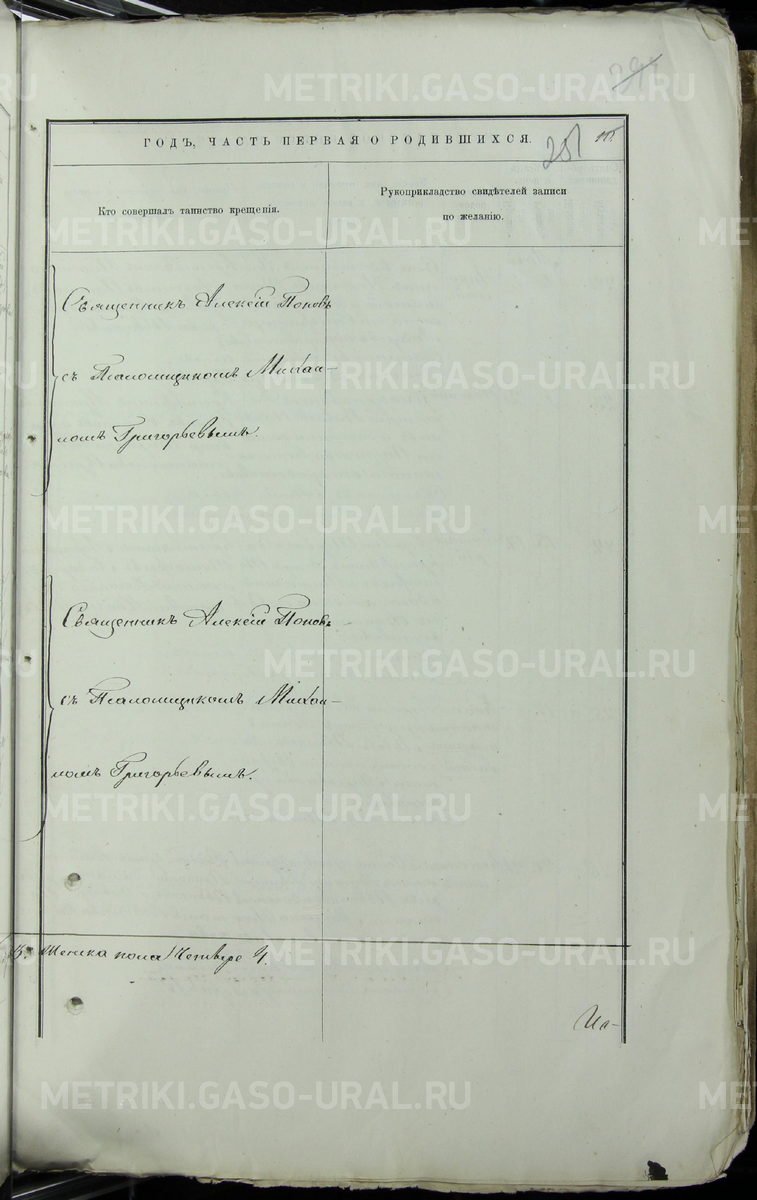 ГОДЪ, ЧАСТЬ ПЕРВАЯ О РОДИВШИХСЯ.
251
Кто совершалъ таинство крещенія.
Рукоприкладство свидѣтелей записи
по желанію.
Священникъ Алексій Поповъ
съ Псаломщикомъ Михаи-
ломъ Григорьевымъ.
Священникъ Алексій Поповъ
съ Псаломщикомъ Михаи-
ломъ Григорьевымъ.
Женска пола Четыре 4.
Иа-
METRIKI.GASO-URAL.RU